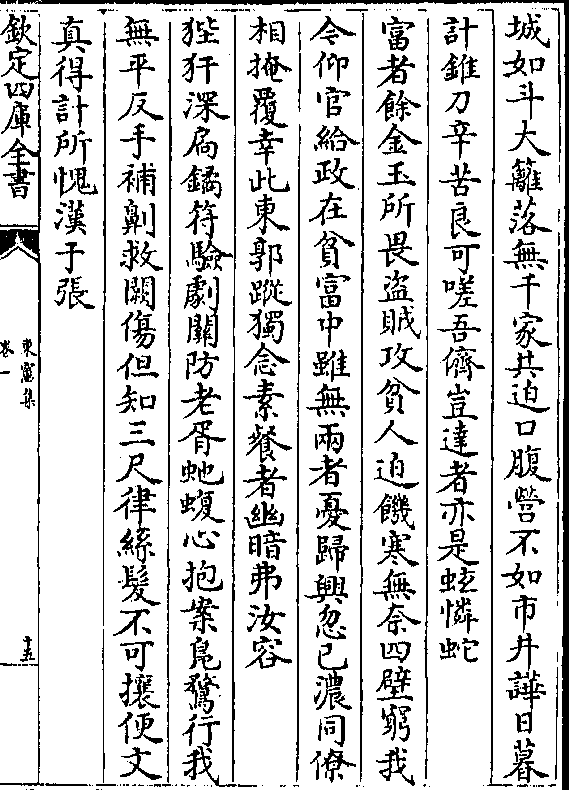 城如斗大籬落無千家共迫口腹營不如市井譁日暮
計錐刀辛苦良可嗟吾儕豈達者亦是蚿憐蛇
富者餘金玉所畏盜賊攻貧人迫饑寒無奈四壁窮我
令仰官給政在貧富中雖無兩者憂歸興忽已濃同僚
相掩覆幸此東郭蹤獨念素餐者幽暗弗汝容
狴犴深扃鐍符驗劇關防老胥虵蝮心抱案鳧鶩行我
無平反手補劓救闕傷但知三尺律絲髮不可攘便文
真得計所愧漢于張
欽定四庫全書
東窻集
卷一
十五